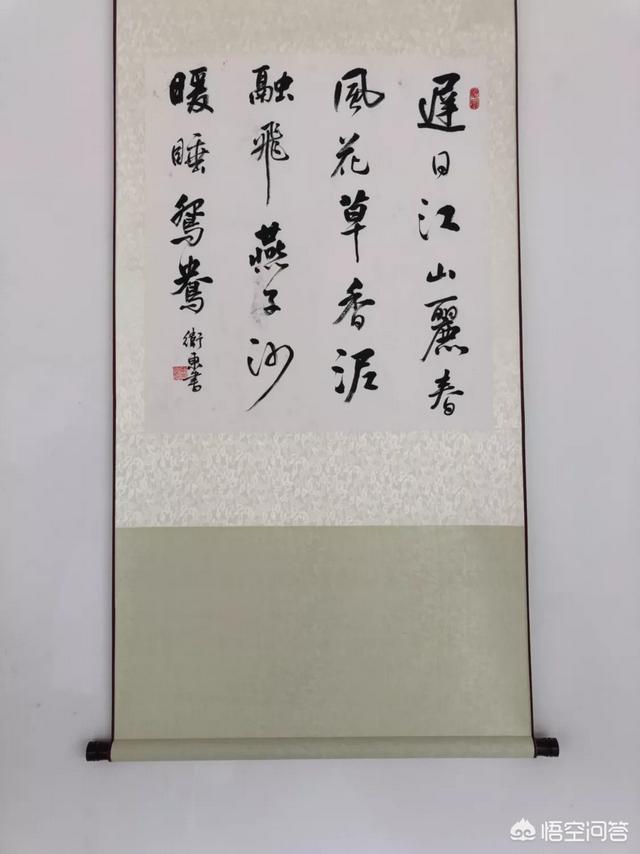 遲日江山麗春
風花草香泥
融飛燕子沙
暖睡鴛鴦
衛東書
悟空问答